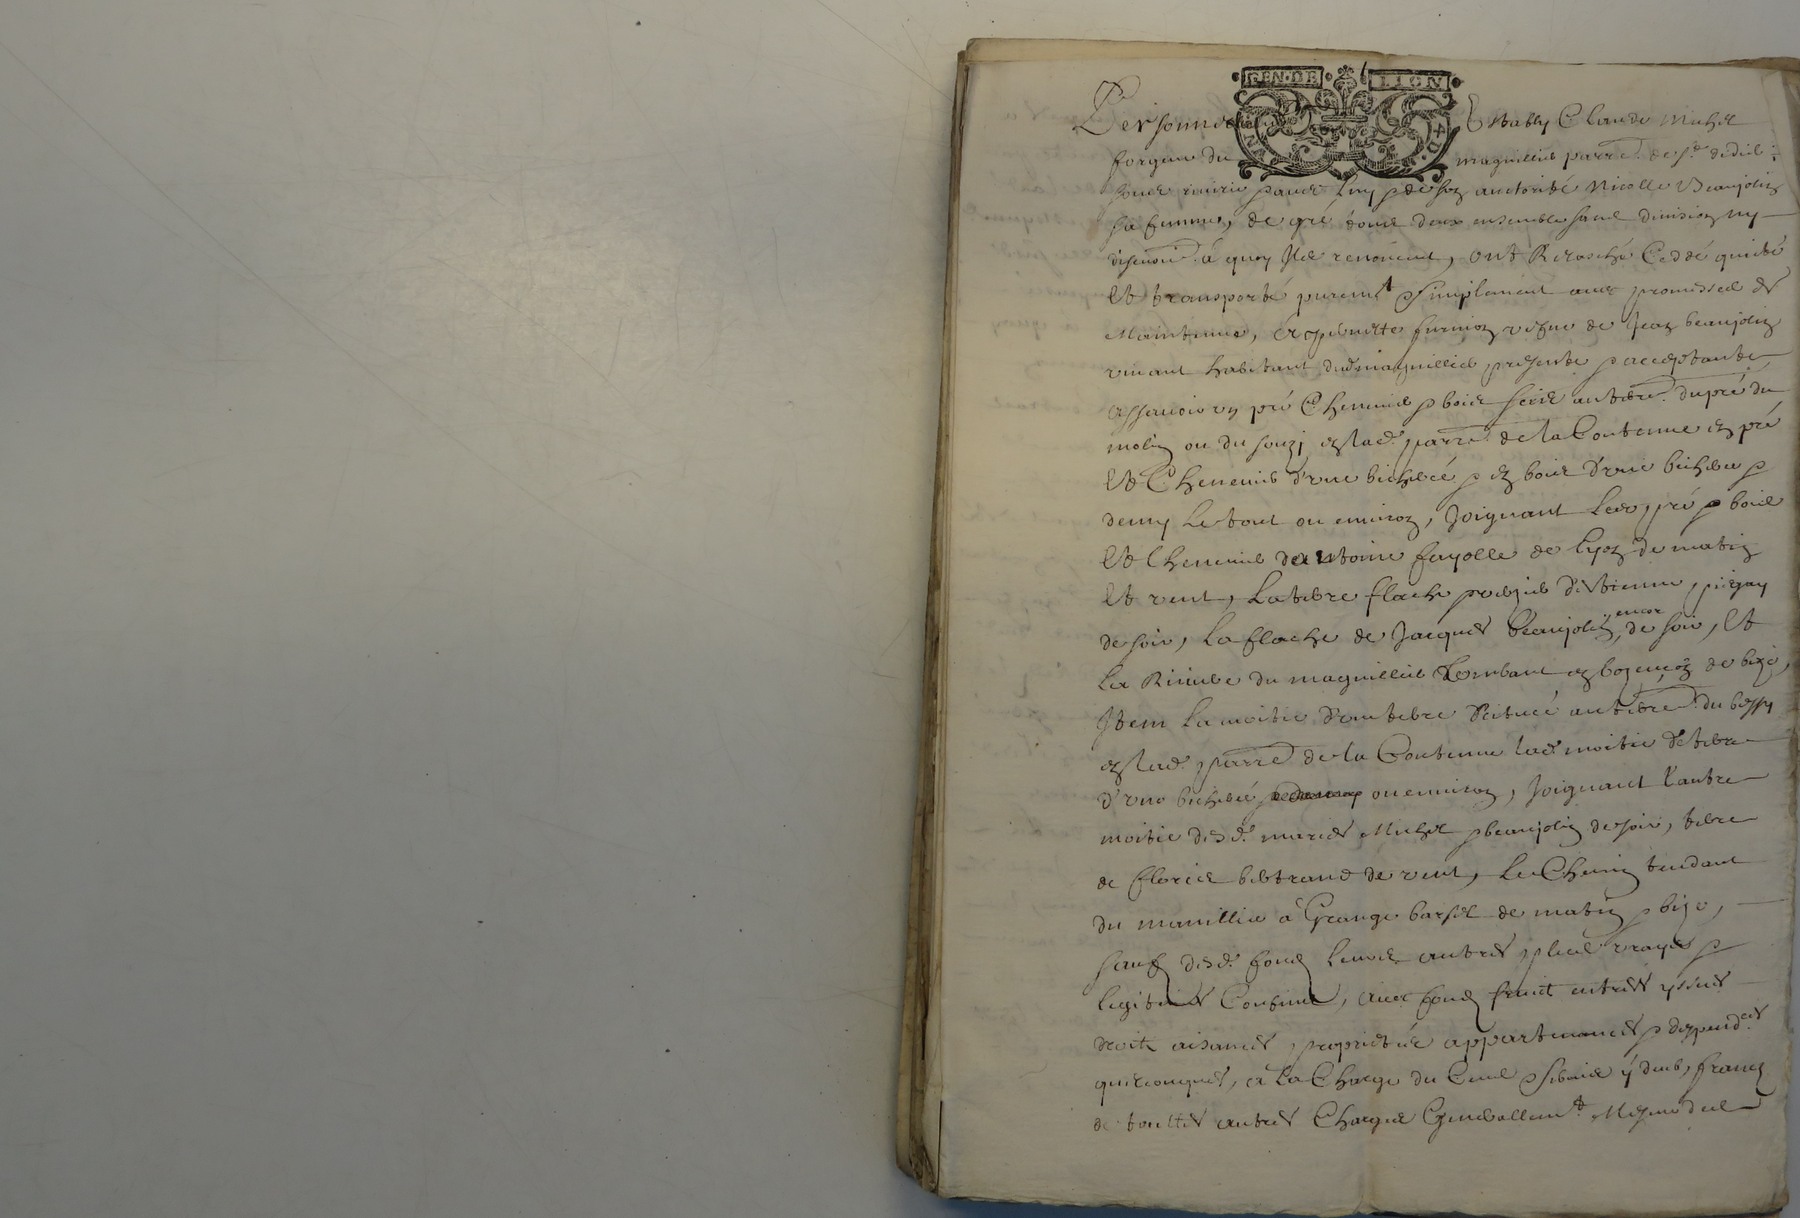 GEN·DE LION
Personnel Estably Claude Michel
forgeur du magnillieu parre.
avec luy & de son auctorité Nicolle Beaujolin
sa femme, de gré tous deux ensemble sans division ny
discution à quoy Ils renoncent, ont Relasché Ceddé quitté
Et transporté puremt & simplement avec promesses de
Maintenue, à pernette furnion vefve de Jean beaujolin
vivant habitant dud. magnillieu présente & acceptante
Assavoir un pré Chenevier & bois scize au terre. du pré du
molin ou du en lad. parre. de la Contenue en pré
Et Chenevier d'une bicherée & en bois d'une bicherée &
demy Le tout ou environ, Joignant Les pré & bois
Et Chenevier d'antoine fayolle de Lyon de matin
Et vent, La terre flache d'Estienne pigay
de soir, La flache de Jacques beaujolin, encor de soir, Et
La Riviere du magnillieu de bize,
Item La moitié d'un terre Scituée au terre. du bessy
en lad. parre. de la Contenue lad. moitié de terre
d'une bicherée ou environ, Joignant l'autre
moitié desd. mariés Michel & beaujolin de soir, terre
de floris bertrand de vent, Le Chemin tendant
du manillier à Grange de matin & bize,
sauf desd. fonds Leurs autres plus vrayes &
legitimes Confins, avec fonds fruict entrées yssues
droit aisances proprietés appartenances & deppend.ces
quelconques, à La Charge du Cens & Servis y deub, francz
de touttes autres Charges Generallemt.